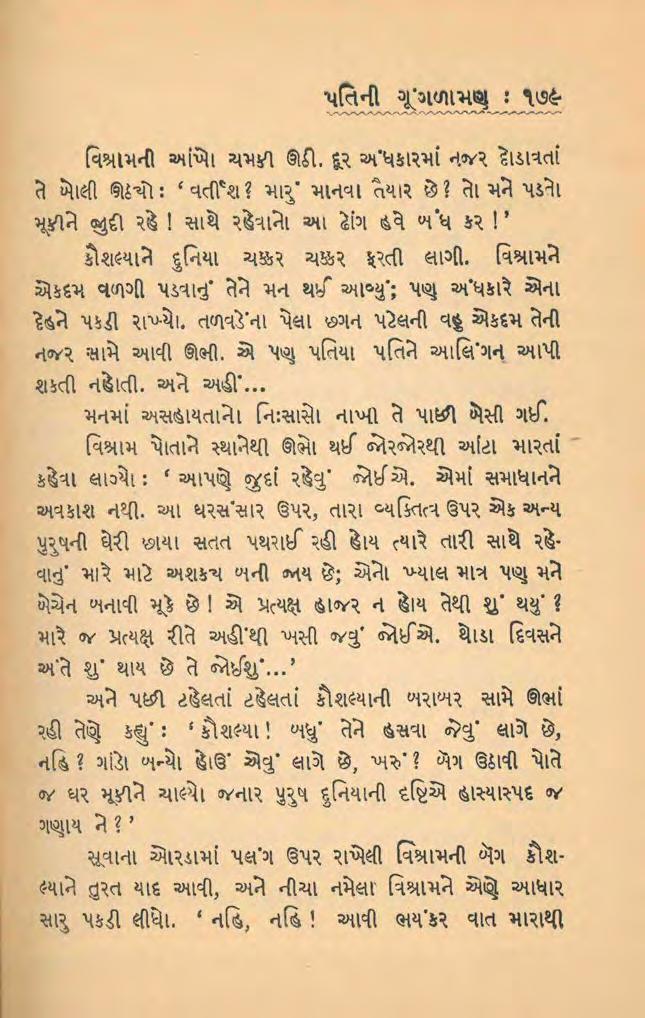 પતિની ગૂંગળામણ : ૧૭૯
વિશ્રામની આંખો ચમકી ઊઠી. દૂર અંધકારમાં નજર દોડાવતાં
તે બોલી ઊઠ્યો : ‘ વર્તીશ ? મારું માનવા તૈયાર છે ? તો મને પડતો
મૂકીને જુદી રહે ! સાથે રહેવાનો આ ઢોંગ હવે બંધ કર !’
કૌશલ્યાને દુનિયા ચક્કર ચક્કર ફરતી લાગી. વિશ્રામને
એકદમ વળગી પડવાનું તેને મન થઈ આવ્યું; પણ અંધકારે એના
દેહને પકડી રાખ્યો. તળવડેંના પેલા છગન પટેલની વહુ એકદમ તેની
નજર સામે આવી ઊભી. એ પણ પતિયા પતિને આલિંગન આપી
શકતી નહોતી. અને અહીં...
મનમાં અસહાયતાનો નિઃસાસો નાખી તે પાછી બેસી ગઈ.
વિશ્રામ પોતાને સ્થાનેથી ઊભો થઈ જોરજોરથી આંટા મારતાં
કહેવા લાગ્યો : ‘ આપણે જુદાં રહેવું જોઈએ. એમાં સમાધાનને
અવકાશ નથી. આ ઘરસંસાર ઉપર, તારા વ્યક્તિત્વ ઉપર એક અન્ય
પુરુષની ઘેરી છાયા સતત પથરાઈ રહી હોય ત્યારે તારી સાથે રહે-
વાનું મારે માટે અશક્ય બની જાય છે; એનો ખ્યાલ માત્ર પણ મને
બેચેન બનાવી મૂકે છે ! એ પ્રત્યક્ષ હાજર ન હોય તેથી શું થયું ?
મારે જ પ્રત્યક્ષ રીતે અહીંથી ખસી જવું જોઈએ. થોડા દિવસને
અંતે શું થાય છે તે જોઈશું...’
અને પછી ટહેલતાં ટહેલતાં કૌશલ્યાની બરાબર સામે ઊભાં
રહી તેણે કહ્યું : ‘ કૌશલ્યા ! બધું તેને હસવા જેવું લાગે છે,
નહિ ? ગાંડો બન્યો હોઉં એવું લાગે છે, ખરું ? બૅગ ઉઠાવી પોતે
જ ઘર મૂકીને ચાલ્યો જનાર પુરુષ દુનિયાની દૃષ્ટિએ હાસ્યાસ્પદ જ
ગણાય ને ?’
સૂવાના ઓરડામાં પલંગ ઉપર રાખેલી વિશ્રામની બૅગ કૌશ-
લ્યાને તુરત યાદ આવી, અને નીચા નમેલા વિશ્રામને એણે આધાર
સારુ પકડી લીધો. ‘ નહિ, નહિ ! આવી ભયંકર વાત મારાથી